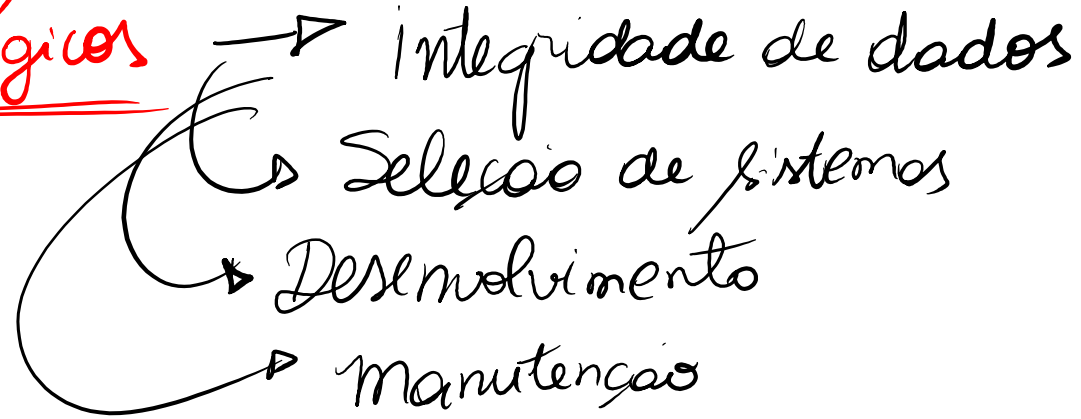 gicos
Integridade de dados
Seleção de sistemas
Desenvolvimento
Manutenção